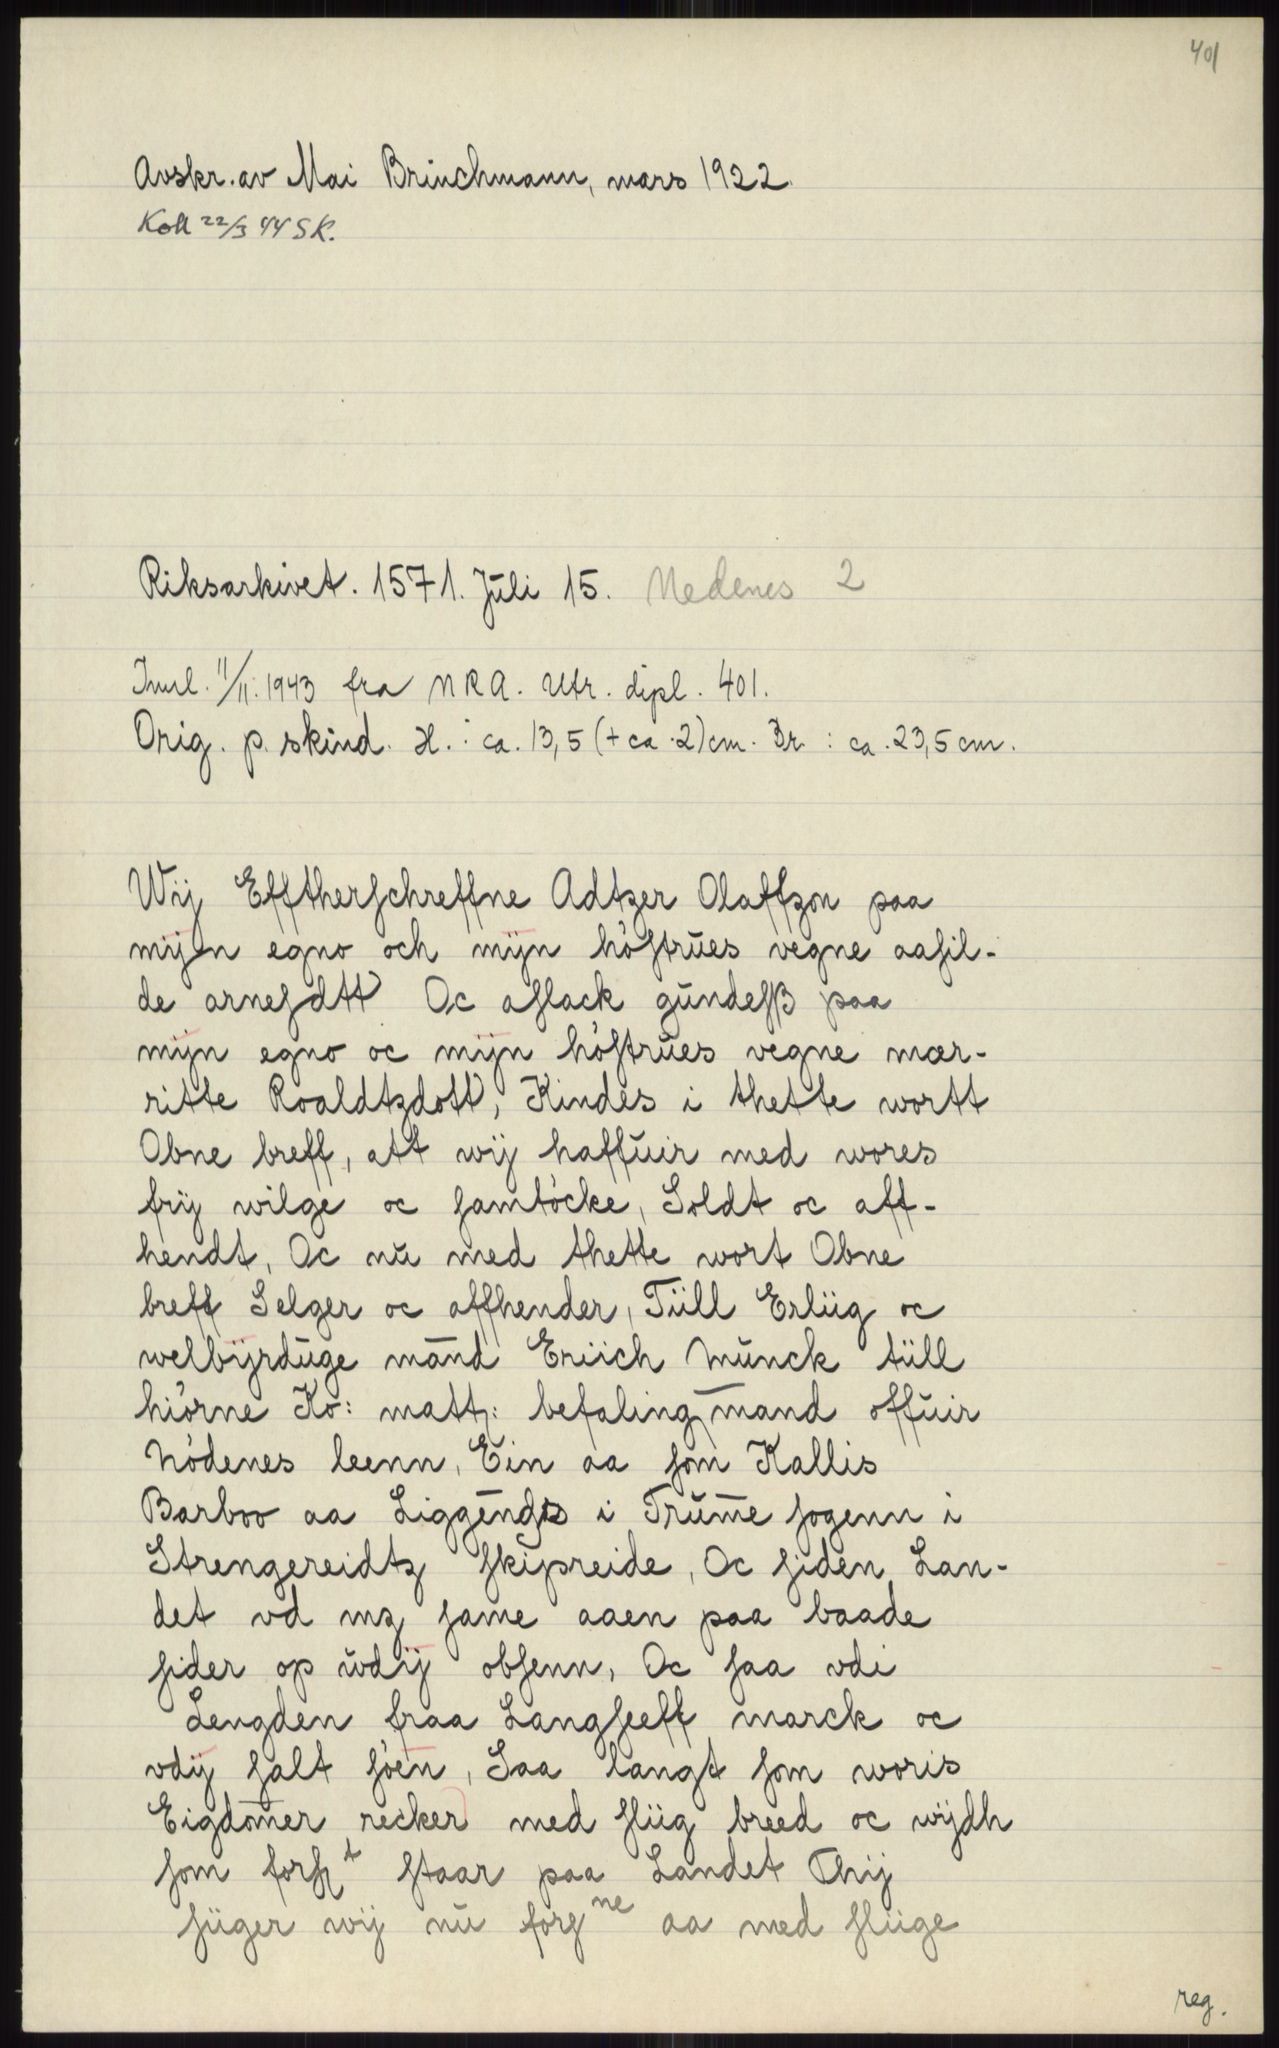 401
Avskr. av Mai Brinchmann, mars 1922.
Koll 22/3 44 SK.
Riksarkivet. 1571. Jŭli 15. Nedenes 2
Innl. 11/11. 1943 fra NRA. Utr. dipl. 401.
Orig. p. skind. H.: ca. 13,5 (+ ca. 2) cm. Br.: ca. 23,5 cm.
Wij Efftherschreffne Adtzer Olaffzon paa
mijn egno och mijn höstrŭes vegne aasil-
de arnesdtt Oc aslack gŭndesß paa
mijn egno oc mijn höstrŭes vegne mar-
ritte Roaldtzdott, Kindes i thette wortt
Obne breff, att wij haffŭir med wores
frij wilge oc samtöcke, Soldt oc aff-
hendt, Oc nŭ med thette wort Obne
breff Selger oc affhender, Tiill Erliig oc
welbijrdŭge mānd Eriich Mŭnck tiill
hiörne Ko: matt: befaling mand offŭir
Nödenes leenn, Ein aa som Kallis
Barboo aa Liggēndis i Trŭme sogenn i
Strengereidtz skipreide, Oc siden Lan-
det vd mz same aaen paa baade
sider op ŭdij obsenn, Oc saa vdi
Lengden fraa Langseeff marck oc
vdij salt söen, Saa langt som woris
Eigdomer recker med sliig breed oc wijdh
som forst staar paa Landet Thij
siiger wij nŭ forsne aa med sliige
reg.